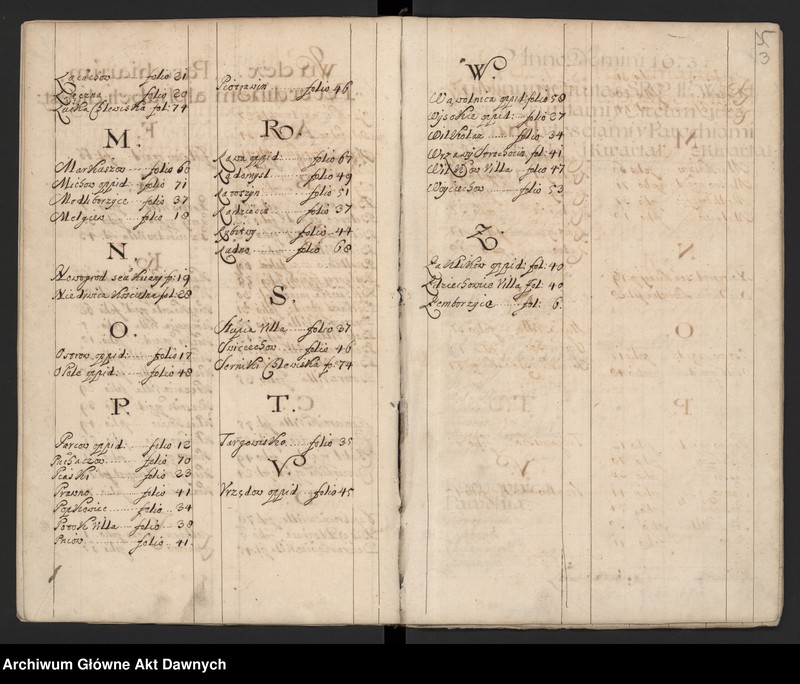 folio 31
folio 20
fol: 74
M.
Markuszow folio 60
Michow oppid folio 71
Modliborzyce folio 37
Melgiew folio 18
N.
fo: 19
Niedrwica Koscielna fol: 28
O.
Ostrow oppid: folio 17
Opole oppid: folio 48
P.
Parcow oppid: folio 12
folio 70
Piaski folio 23
Prawno folio 41
Popkowice folio 34
Potok Villa folio 38
Pniow folio 41
Piotrawin folio 46
R.
Rawa oppid folio 67
Radomysl folio 49
folio 51
Radziecin folio 37
folio 44
Radno folio 68
S.
Slupie Villa folio 37
Swieciechow folio 46
Serniki fo: 74
T.
Targowisko folio 35
V.
Vrzędow oppid folio 45
W.
Wąwolnica oppid: folio 58
Wysokie oppid: folio 37
Wilkolaz folio 34
Wrzawy fol: 41
Wilkow Villa folio 47
Woyciechow folio 53
Z.
Zaklikow oppid: fol: 40
Zdziechowice Villa fol: 40
Zemborzyce fol: 6.
3
Archiwum Główne Akt Dawnych